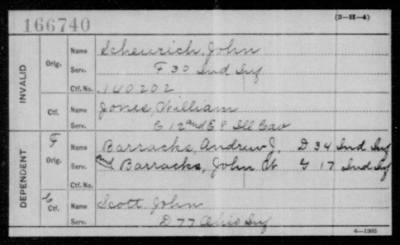 166740
(3-22-4)
INVALID
Orig.
Name Scheurich, John
Serv. F 30 Ind Inf
Ctf. No. 140202
Ctf.
Name Jones, William
Serv. Ill Cav
DEPENDENT
F
Orig.
Name Barracks, Andrew J. D 34 Ind Inf
Serv. and Barracks, John W G 17 Ind Inf
Ctf. No.
C
Ctf.
Name Scott, John
Serv. D 77 Ohio Inf